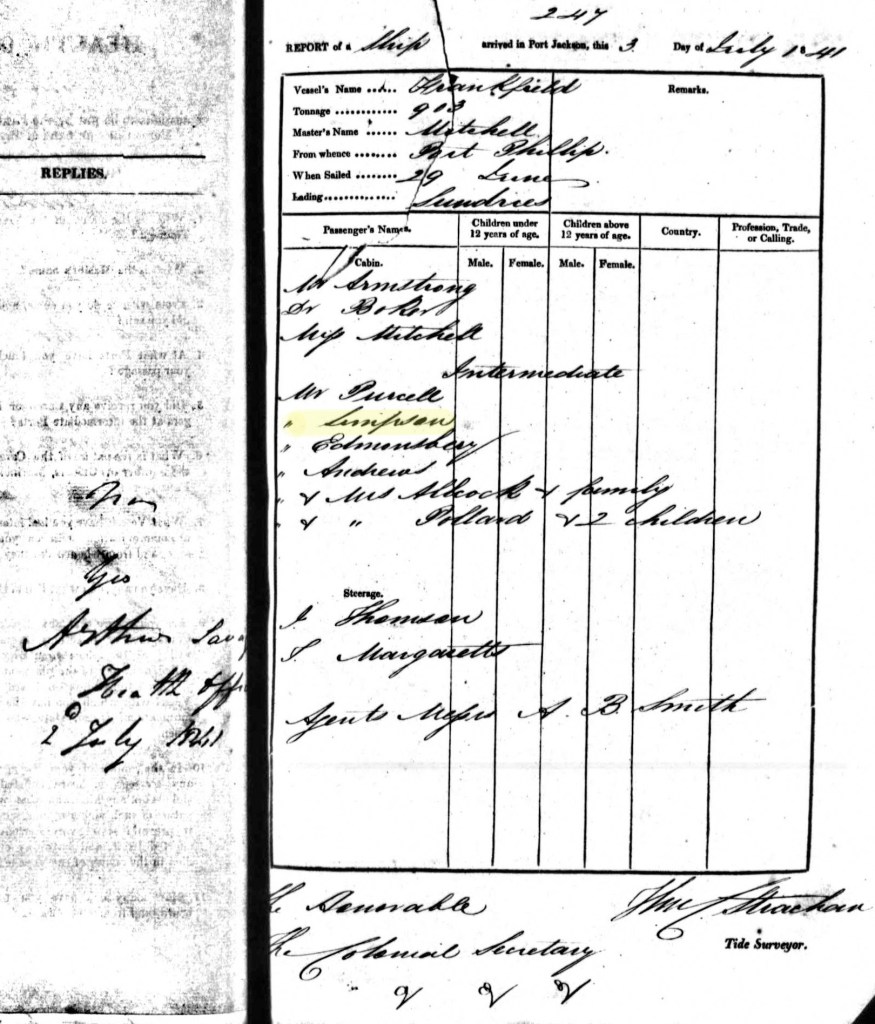 REPLIES.
Geo
Arthur
2 July 1841
247
REPORT of a Ship arrived in Port Jackson, this 3 Day of July 1841
Vessel's Name ...... Frankfield
Remarks.
Tonnage ............ 903
Master's Name ...... Mitchell
From whence ........ Port Phillip.
When Sailed ........ 29 June
Lading .............. Sundries
Passenger's Names. Children under 12 years of age. Children above 12 years of age. Country. Profession, Trade, or Calling.
Cabin. Male. Female. Male. Female.
Mr Armstrong
Dr Boker
Miss Mitchell
Intermediate
Mr Purcell
" Simpson
" Edmonsbery
" Andrews
" & Mrs Allcock & family
" & " Pollard & 2 children
Steerage.
J Thomson
T. Margaretts
Agents Messrs A. B. Smith
Honorable
Colonial Secretary
Strachan
Tide Surveyor.